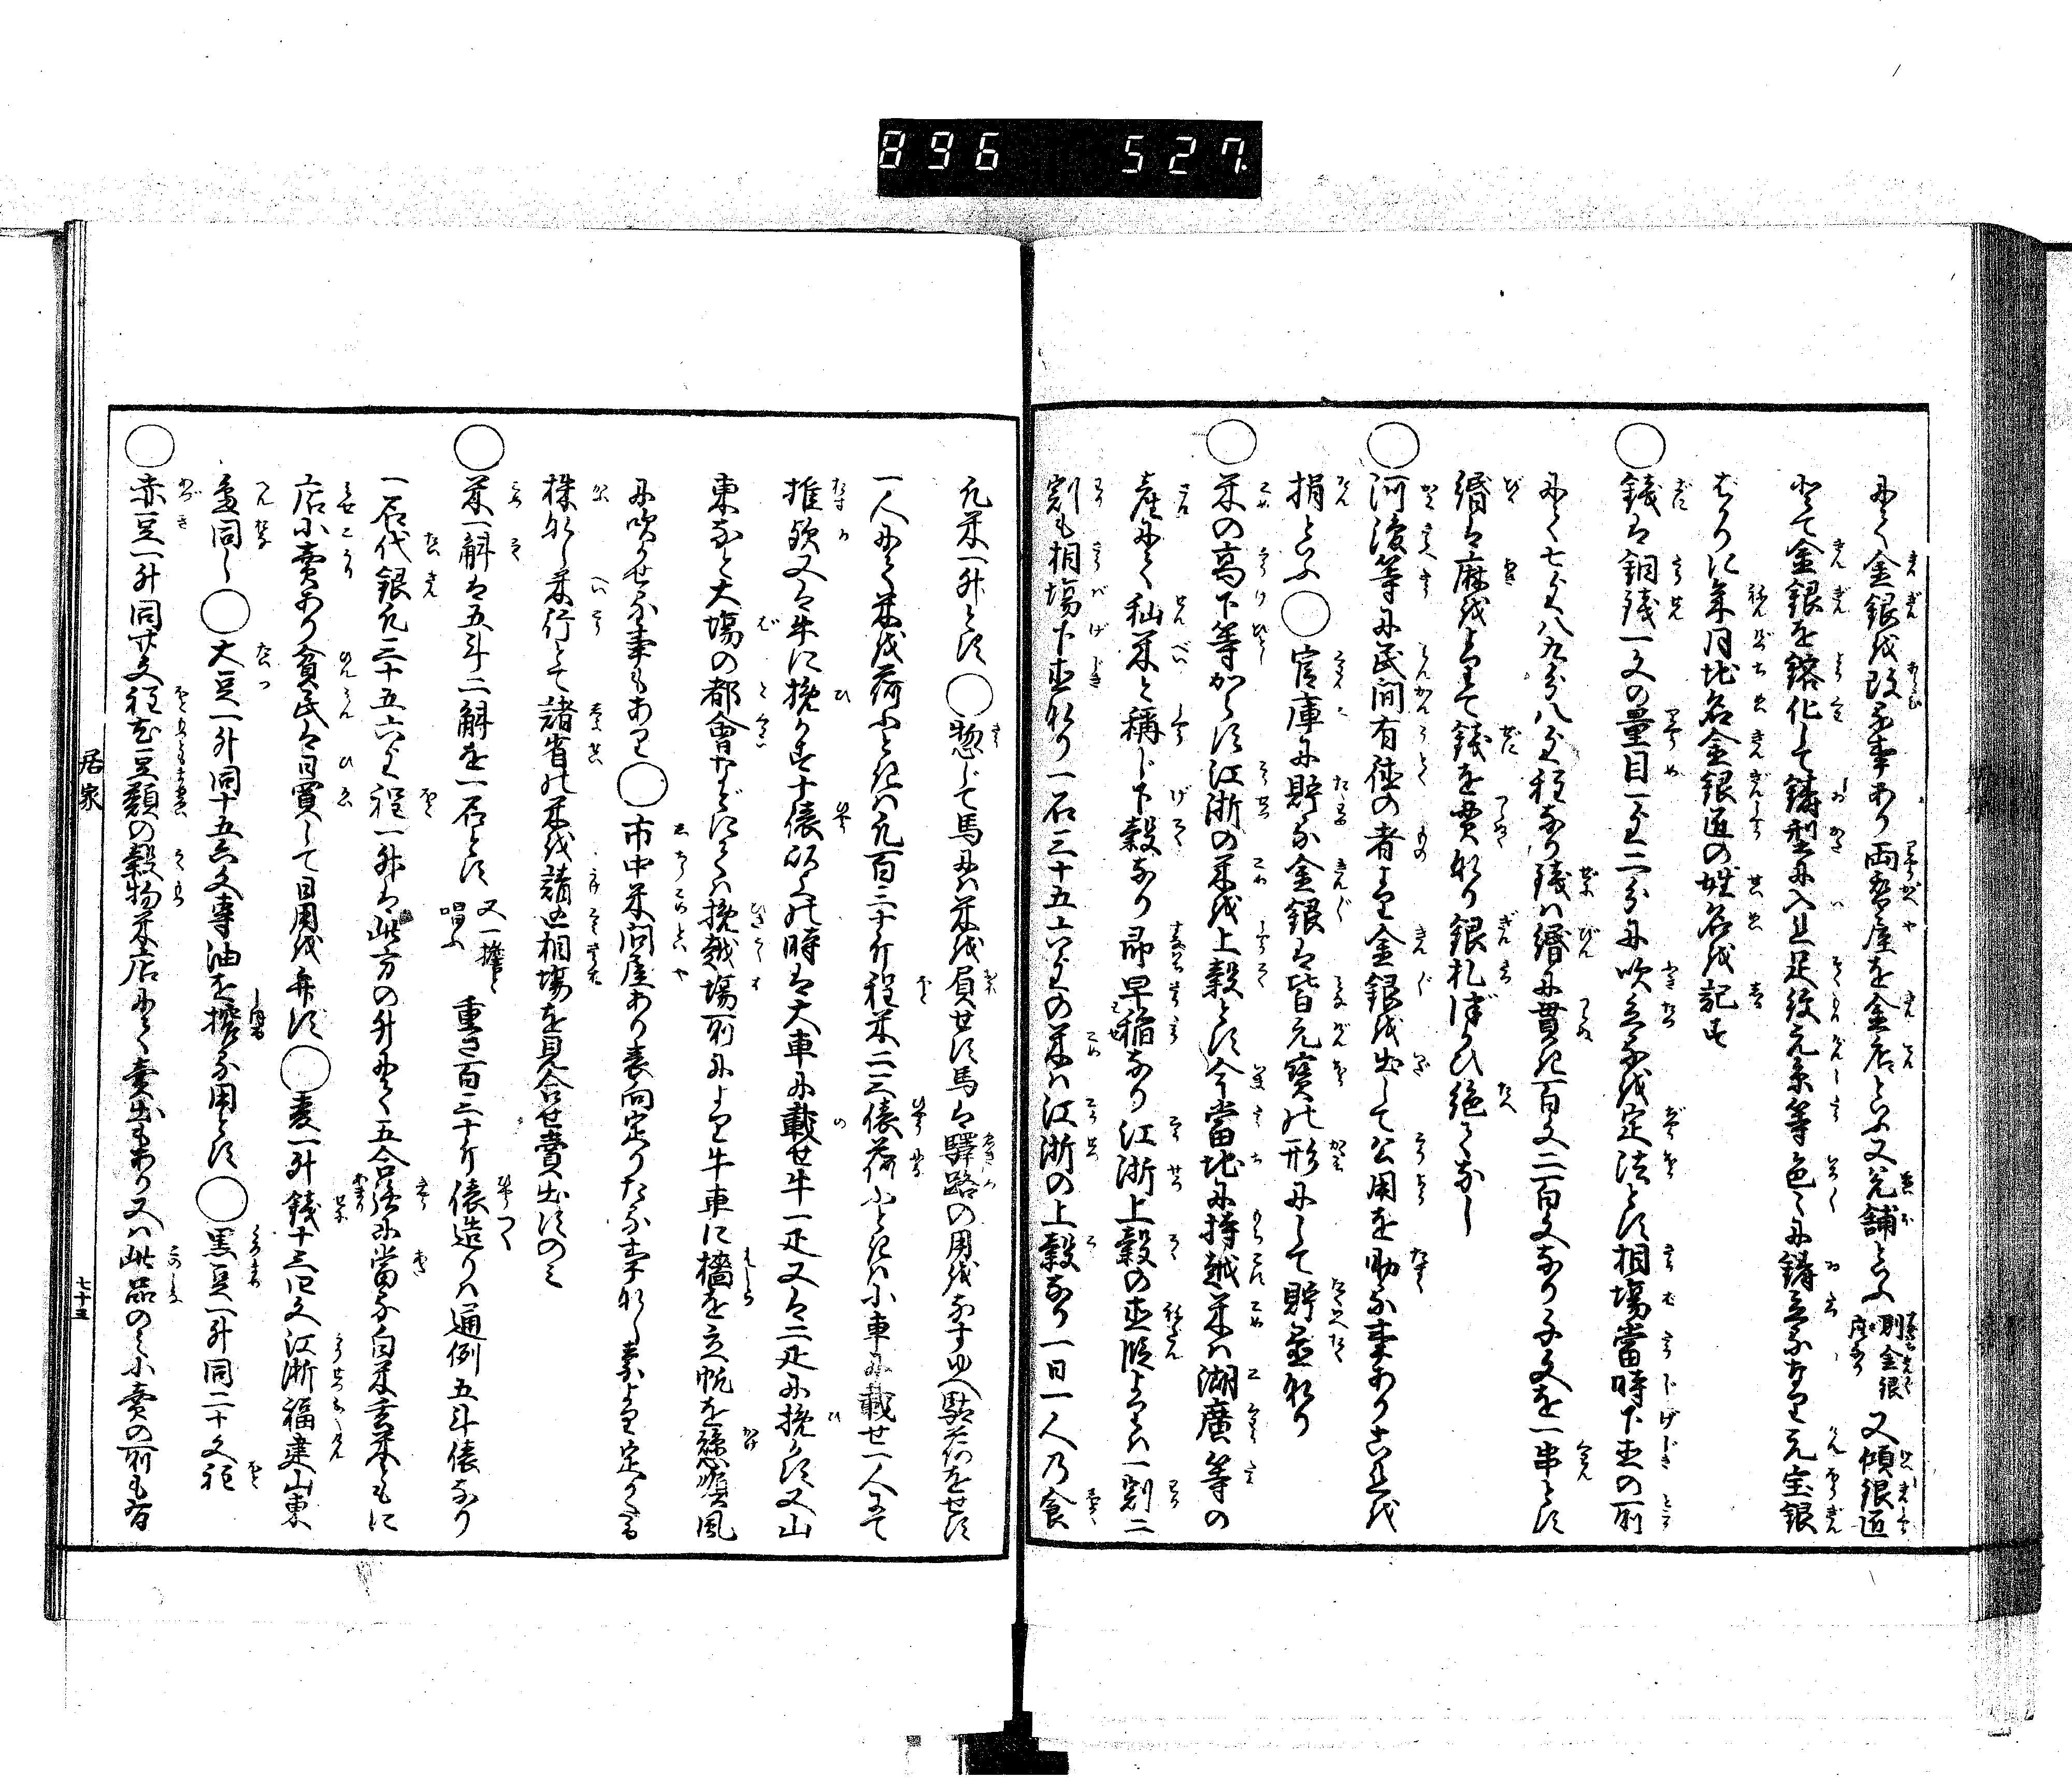 896 527
にて金銀を改る事あり両替屋を金店といふ又兌舗といふ別金銀座あり又傾銀匠
とて金銀を鎔化して鋳型に入且足紋元糸等色々に鋳立るなり元宝銀
はりに年月地名金銀匠の姓名を記す
○銭は銅銭一文の量目一匁二分に吹立るを定法とす相場當時下直の所
にて七匁八九分八匁程なり銭は緡に貫き百文二百文あり千文を一串とす
緡は麻をよりて銭を貫なり銀札つかひ絶てなし
○河湊等に民間有徳の者より金銀を出して公用を助る事あり是を
捐といふ○官庫に貯る金銀は皆元寶の形にして貯置なり
○米の高下等からす江浙の米を上穀とす今當地に持越米は湖廣等の
産にて秈米と稱し下穀なり即早稲なり江浙上穀の直段よりは一割二
割も相場下直なり一石三十五六匁の米は江浙の上穀なり一日一人乃食
凡米一升とす○惣じて馬には米を負せす馬は驛路の用をなすゆへ駄荷をせす
一人にて米を荷ふときは凡百二十斤程米二三俵荷ふときは小車に載せ一人にて
推歟又は牛に挽かす十俵以上の時は大車に載せ牛一疋又は二疋に挽かす又山
東なと大場の都會などにては挽越場所により牛車に檣を立帆を懸順風
に吹かせる事もあり○市中米問屋あり表向定りたる事なし素より定りたる
株なし米行とて諸省の米を請込相場を見合せ賣出すのミ
○米一斛は五斗二斛を一石とす又一擔と唱ふ重さ百二十斤俵造りは通例五斗俵なり
一石代銀凡三十五六匁程一升は此方の升にて五合餘に當る白米玄米ともに
店小賣あり貧民は日買して日用を弁す○麦一升銭十三四文江浙福建山東
邊同し○大豆一升同十五六文専油を搾る用とす○黒豆一升同二十文程
○赤豆一升同廿文程右豆類の穀物米店にて賣出もあり又は此品のミ小賣の所も有
居家
七十五